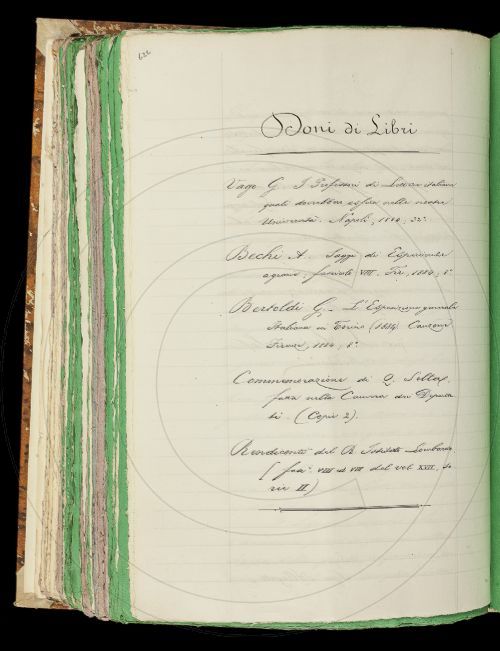 622
Doni di Libri
Vago G. I Professori di Lettere italiane
quali dovrebbero essere nelle nostre
Università. Napoli, 1884, 32°.
Bechi A. Saggi di Esperienze
agrarie, fascicolo VIII. Fir., 1884, 8°.
Bertoldi G. – L'Esposizione generale
Italiana in Torino (1884). Canzone
Firenze, 1884, 8°.
Commemorazione di Q. Sella,
fatta nella Camera dei Deputa
ti. (Copie 2).
Rendiconti del R. Istituto Lombardo
(fasc. VII ed VIII del vol. XVII, se
rie II)